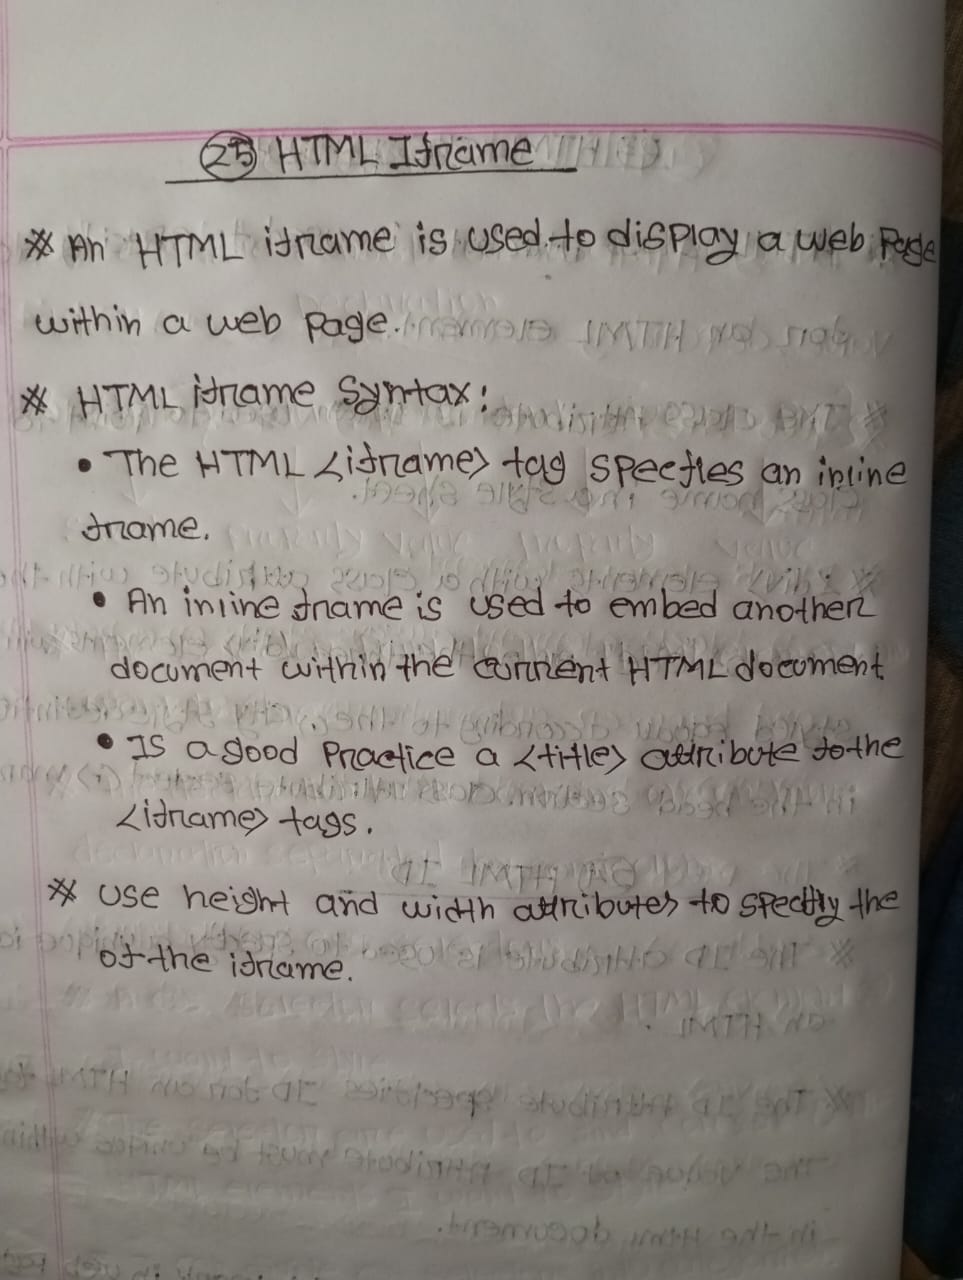 25 HTML Iframe
* An HTML iframe is used to display a web Page
within a web page.
* HTML iframe Syntax:
• The HTML <iframe> tag specfies an inline
frame.
• An inline frame is used to embed another
document within the current HTML document
• Is a good Practice a <title> attribute to the
<iframe> tags.
* Use height and width attributes to specify the
of the iframe.